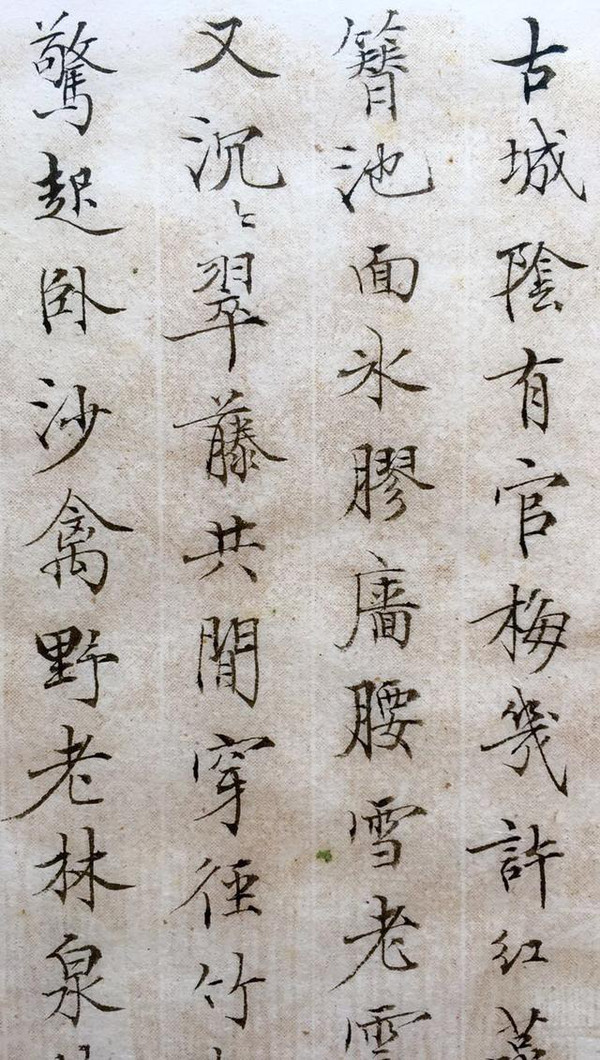 古城陰有官梅幾許紅萼
簮池面冰膠廧腰雪老雲
又沉〻翠藤共閒穿徑竹
驚起卧沙禽野老林泉